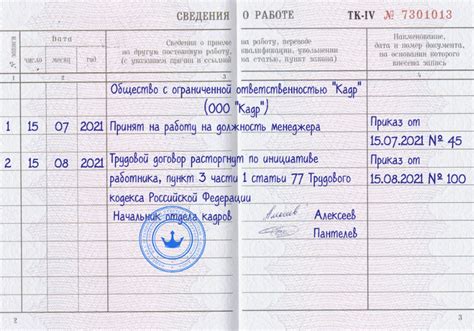 СВЕДЕНИЯ О РАБОТЕ ТК-IV № 7301013
№ записи
Дата
число месяц год
Сведения о приеме на работу, переводе
на другую постоянную работу, квалификации, увольнении
(с указанием причин и ссылкой на статью, пункт закона)
Наименование,
дата и номер документа,
на основании которого
внесена запись
1 2 3 4
Общество с ограниченной ответственностью "Кадр"
(ООО "Кадр")
1 15 07 2021 Принят на работу на должность менеджера Приказ от
15.07.2021 № 45
2 15 08 2021 Трудовой договор расторгнут по инициативе Приказ от
работника, пункт 3 части 1 статьи 77 Трудового 15.08.2021 № 100
кодекса Российской Федерации
Начальник отдела кадров Алексеев Алексеев
Пантелев
2 3